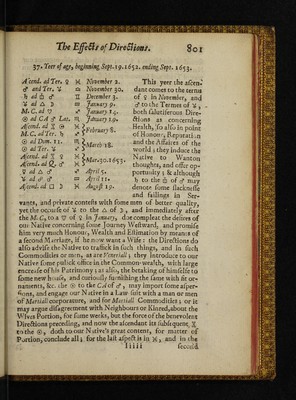 The Effects of Directions. 801
37. Yeer of age, beginning Sept. 19. 1652. ending Sept. 1653.
Ascend. ad Ter. ♀ ♓ November 2.
♂ and Ter. ♃ ♒ November 30.
♄ ad △ ♎ December 3.
♃ ad △ ☽ ♏ January 9.
M. C. ad ♉ ♂ January 14.
⊕ ad CA ♂ Lat. ♏ January 19.
Ascend. ad ♊ ⊕ ♓
M. C. ad Ter. ♄ ♂ February 8.
⊕ ad Dom. 11. ♏
⊕ ad Ter. ♃ ♂ March 18.
Ascend. ad ♊ ♀ ♓
Ascend. ad Q. ♂ ♓ Mar. 30. 1653.
♀ ad △ ♂ ♂ April 5.
♀ ad ♂ ♏ April 11.
Ascend. ad □ ☽ ♓ August 19.
This yeer the ascen-
dant comes to the terms
of ♀ in November, and
♂ to the Termes of ♃;
both salutiferous Dire-
ctions as concerning
Health, so also in point
of Honour, Reputation
and the Affaires of the
world; they induce the
Native to Wanton
thoughts, and offer op-
portunity; & although
♄ to the ♂ may
denote some slacknesse
and failings in Ser-
vants, and private contests with some men of better quality,
yet the occurse of ♃ to the △ of ☽, and immediately after
the M. C. to a ♉ of ♀ in January, doe compleat the desires of
our Native concerning some Journey Westward, and promise
him very much Honour, Wealth and Estimation by meanes of
a second Marriage, if he now want a Wife: the Directions do
also advise the Native to traffick in such things, and in such
Commodities or men, as are Venerial; they introduce to our
Native some publick office in the Common-wealth, with large
encrease of his Patrimony; as also, the betaking of himselfe to
some new house, and curiously furnishing the same with fit or-
naments, &c. the ⊕ to the CA of ♂, may import some asper-
sions, and engage our Native in a Law suit with a man or men
of Martiall corporature, and for Martiall Commodities; or it
may argue disagreement with Neighbours or Kinred, about the
Wives Portion, for some works, but the force of the benevolent
Directions preceding, and now the ascendant its subsequent ⚹
to the ⊕, doth to our Native's great content, for matter of
Portion, conclude all; for the last aspect is in ♓, and in the
Iiiii second